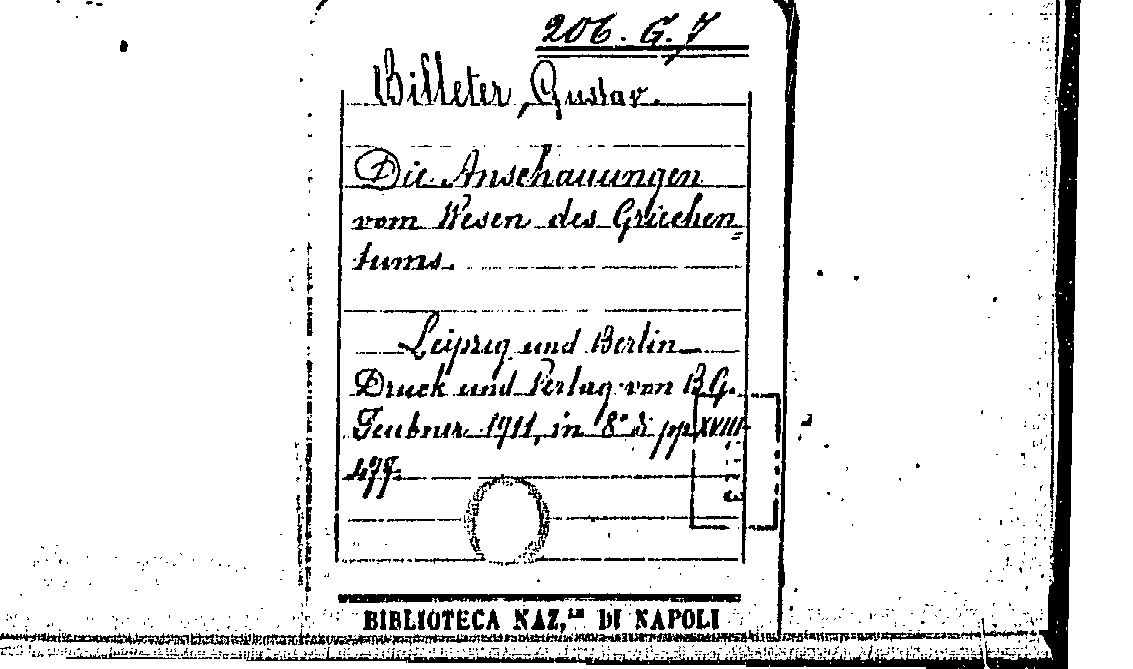 206. G. 7
Billeter, Gustav.
Die Anschauungen
vom Wesen des Griechen=
tums.
Leipzig und Berlin
Druck und Verlag von B.G.
Teubner 1911, in 8° di pp XVIII-
477.
BIBLIOTECA NAZ,ᴸᴱ DI NAPOLI